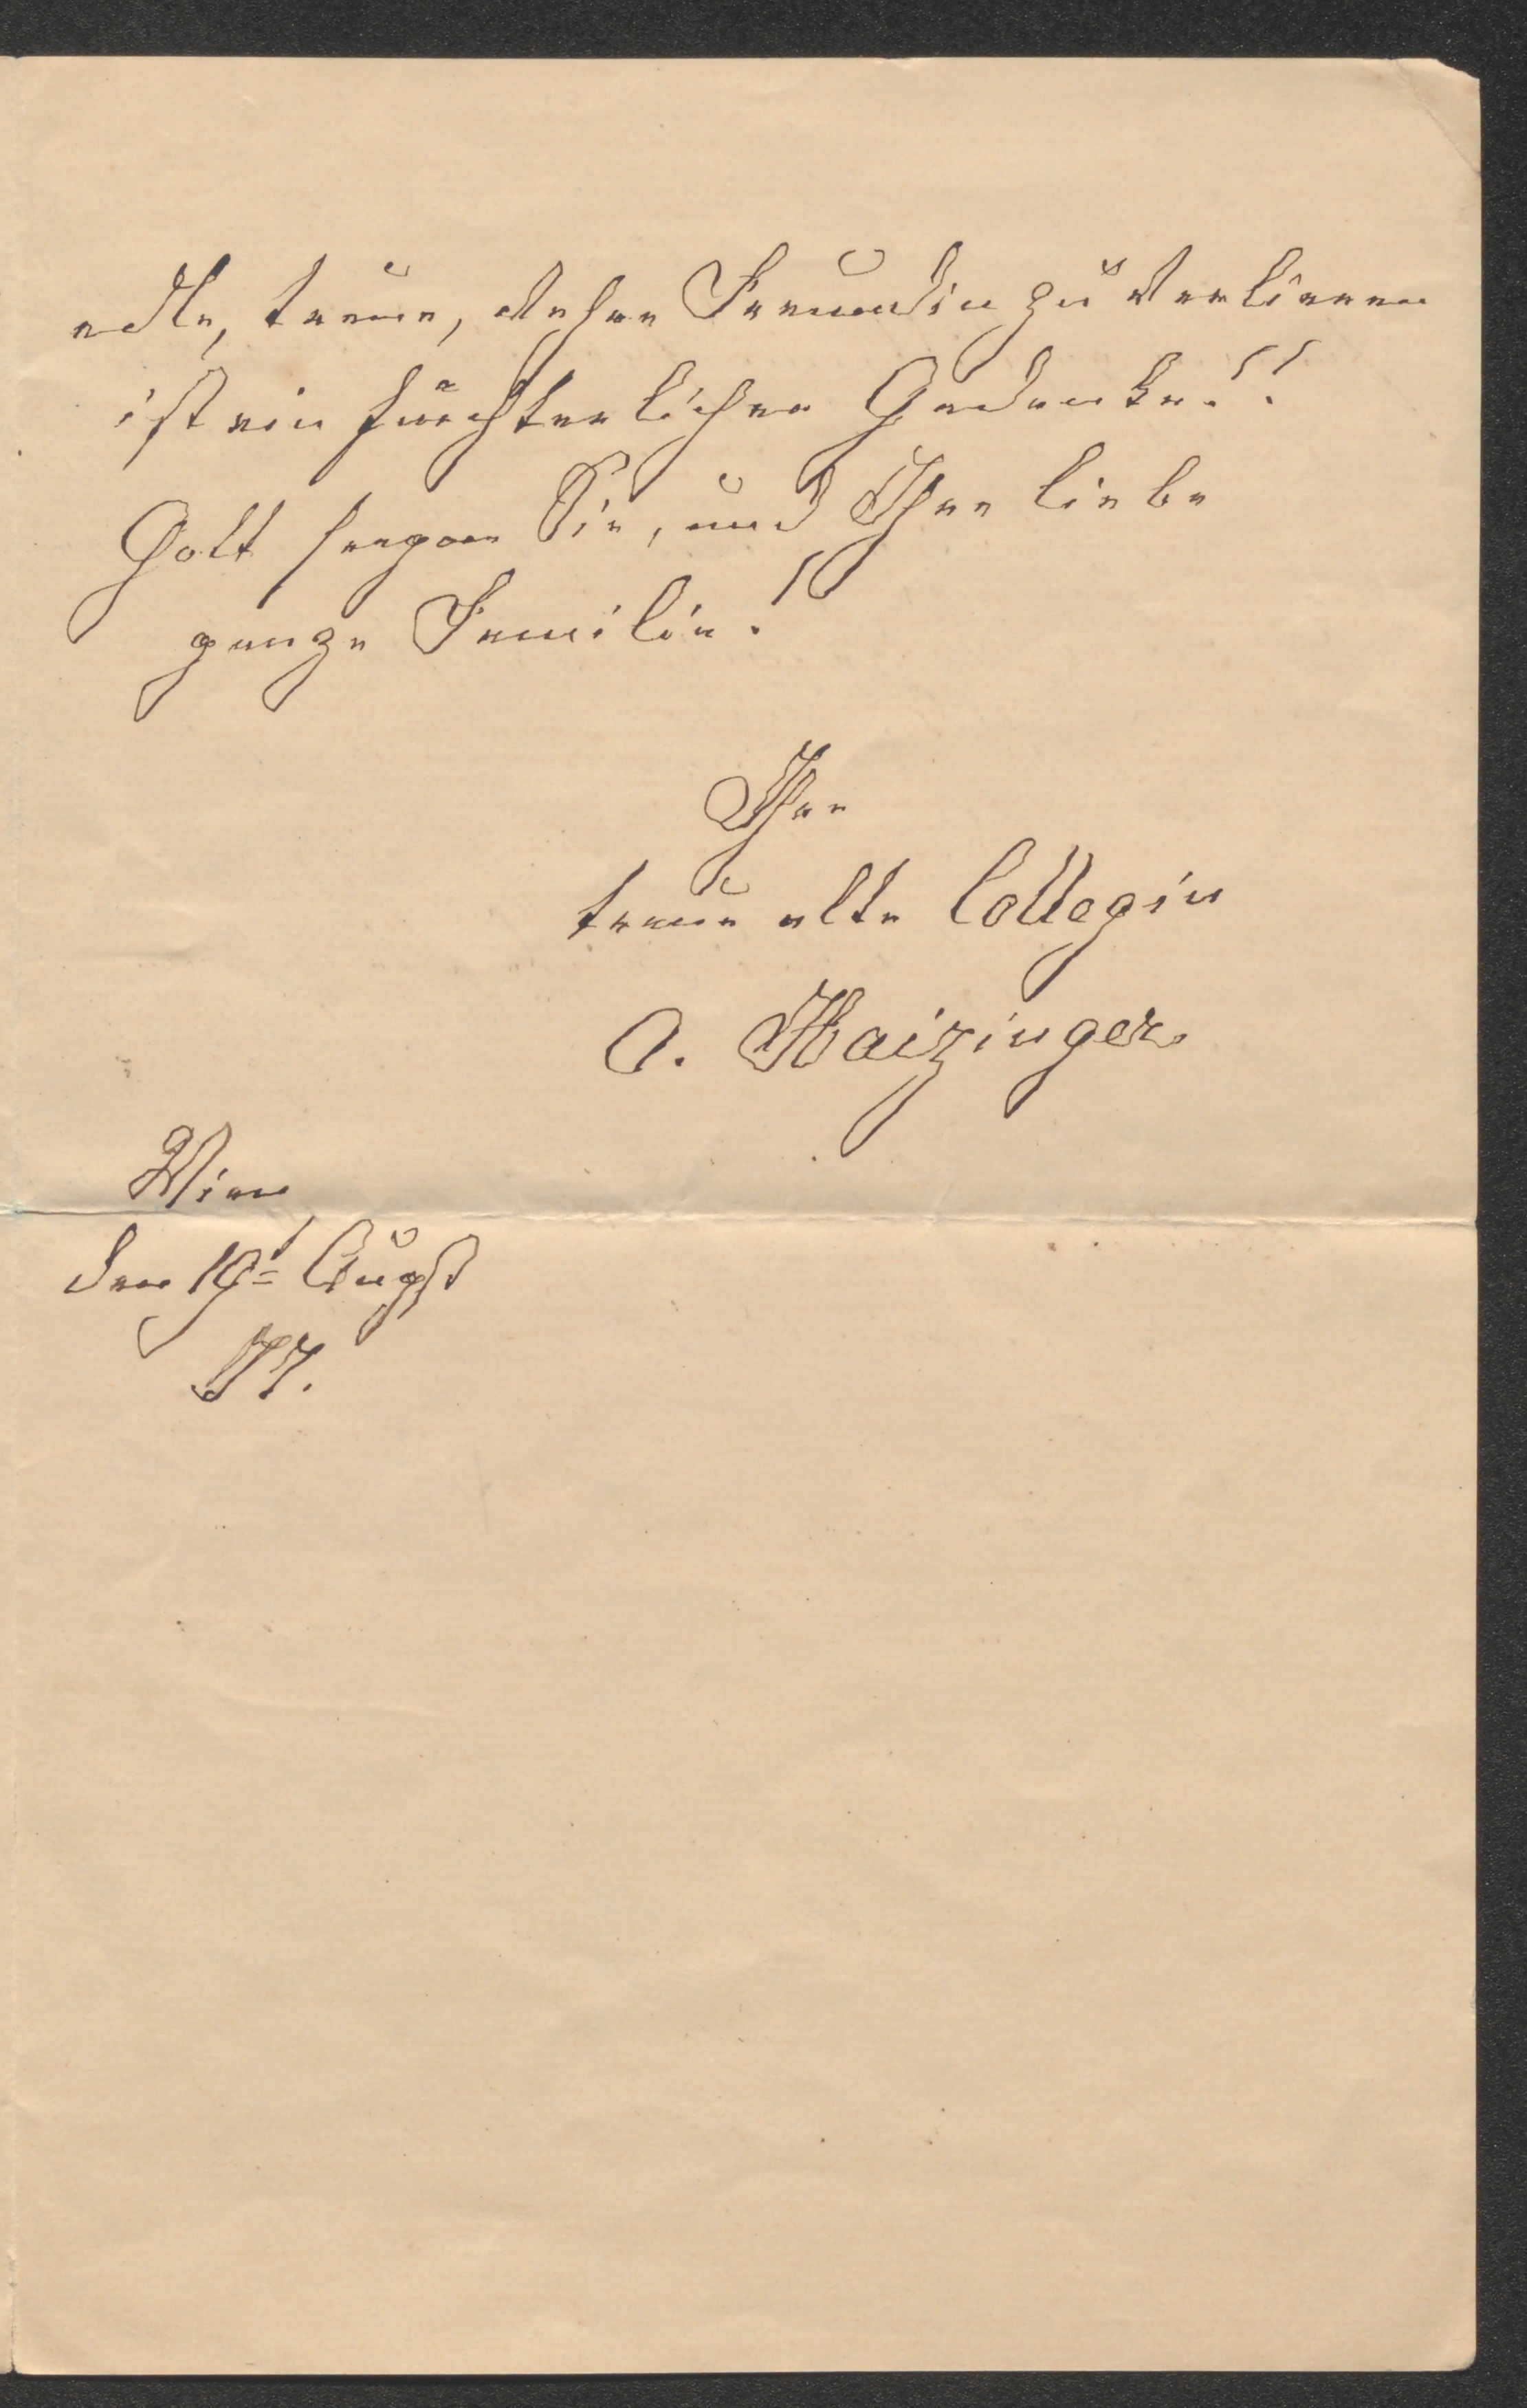 edle, treue, wahre Freundin zu verlieren
ist ein fürchterlicher Gedanke!!
Gott seegne Sie, und Ihre liebe
ganze Familie!
Ihre
treue alte Collegin
A. Haizinger
Wien
den 19t Augst
77.